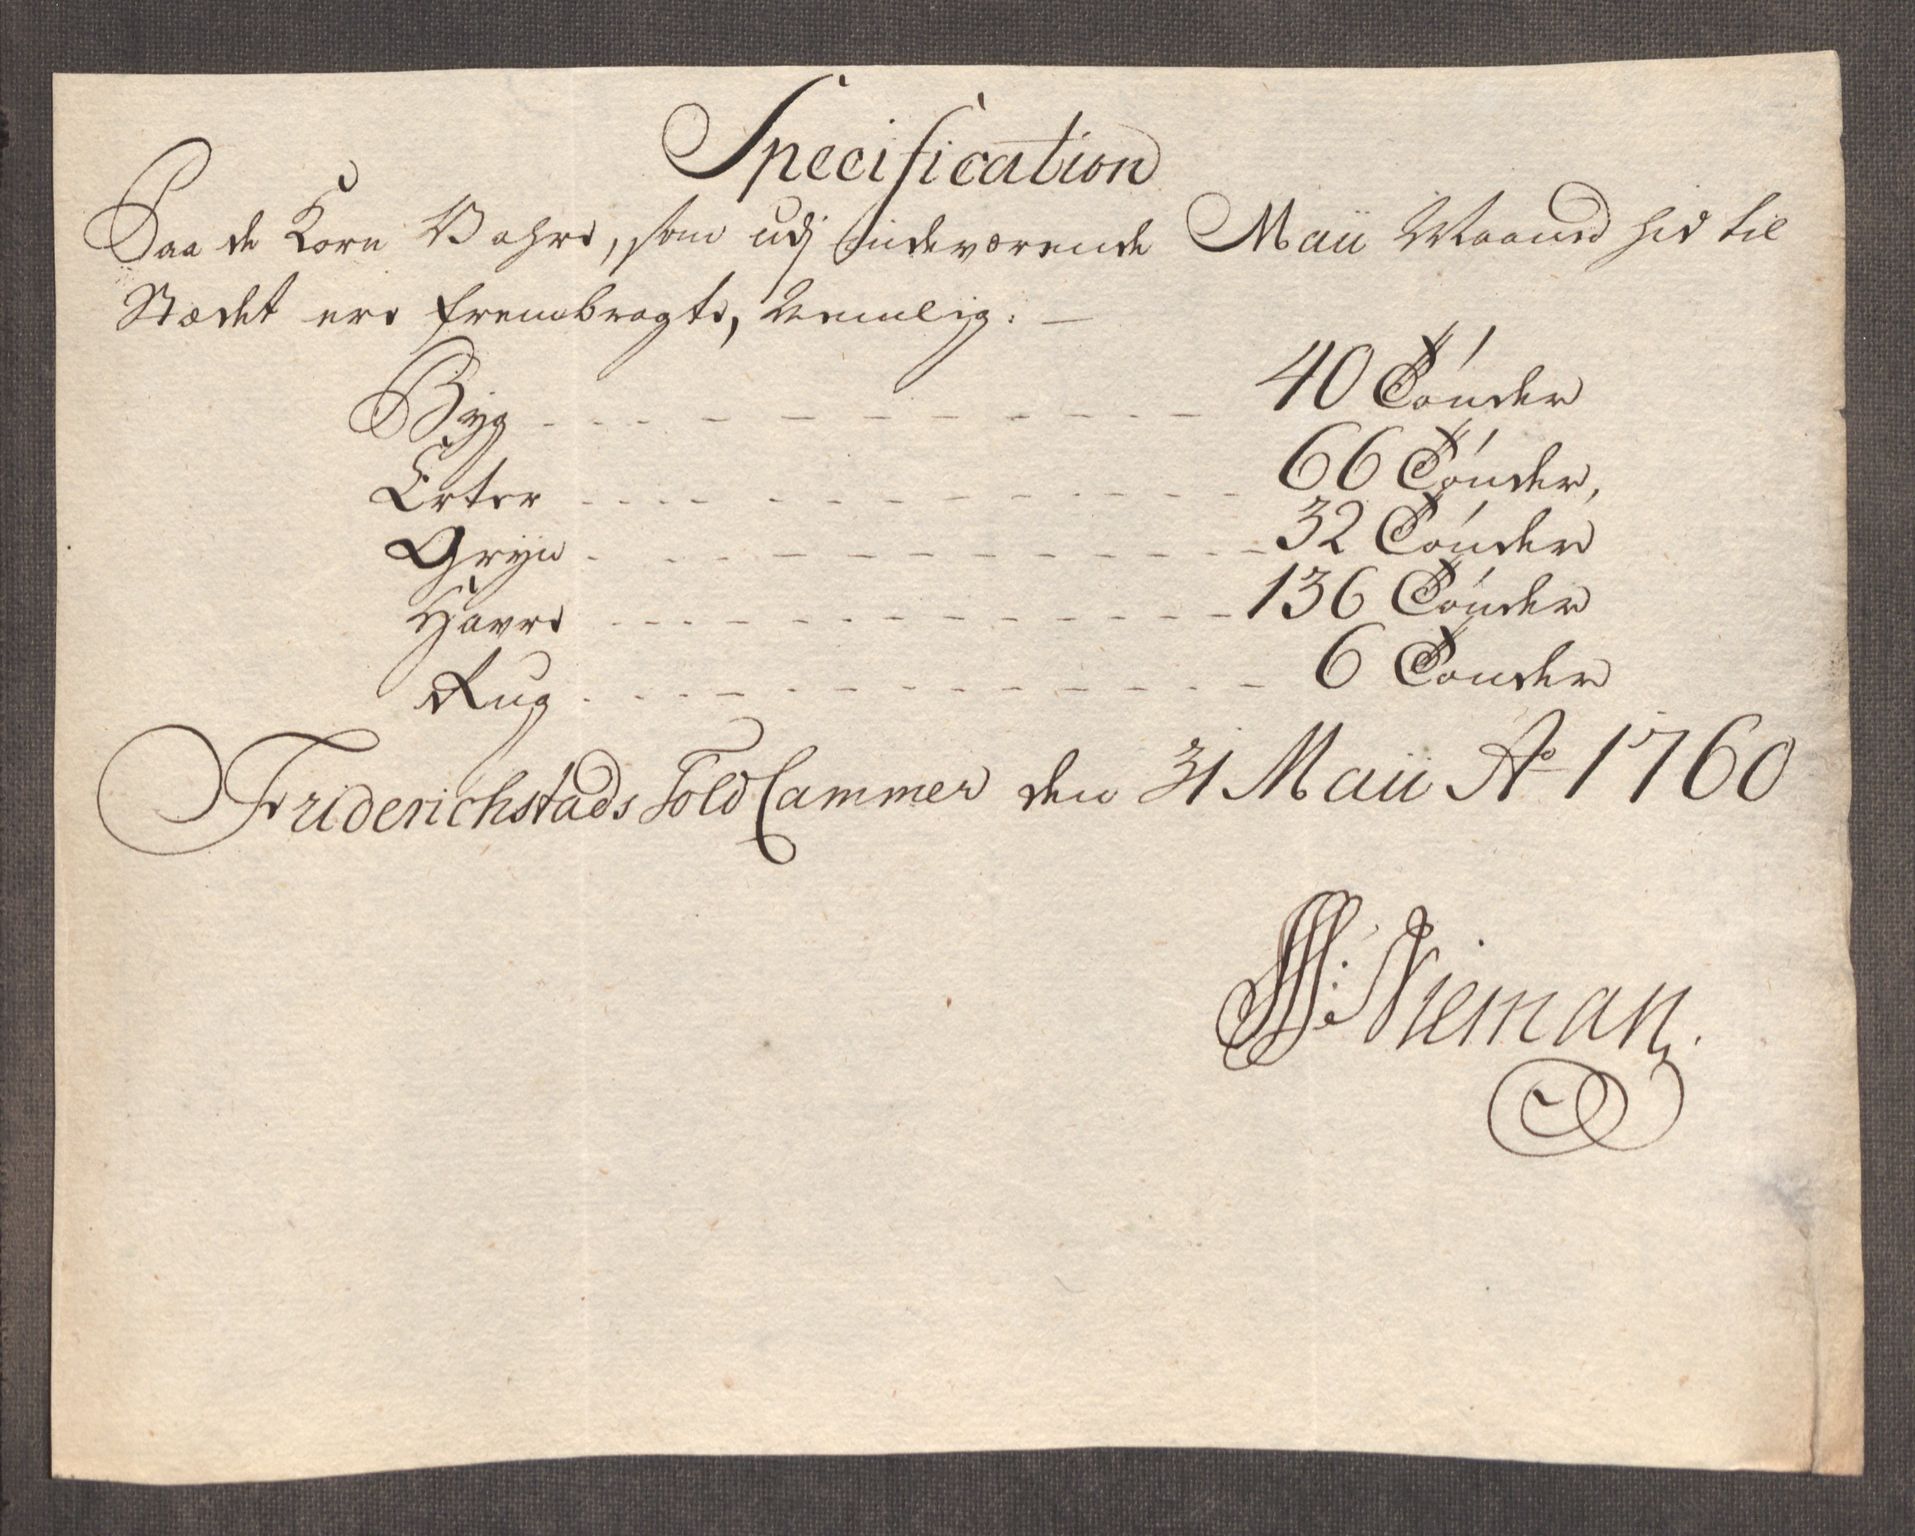 Specification
Paa de Korn Vahre, som udj indeværende Maii Maaned hid til
Stædet ere frembragte, Nemlig:
Byg - - - 40 Tønder
Erter - - - 66 Tønder,
Gryn - - - 32 Tønder
Havre - - - 136 Tønder
Rug - - - 6 Tønder
Friderichstads Told Cammer den 31 Maii Ao 1760
Nieman.